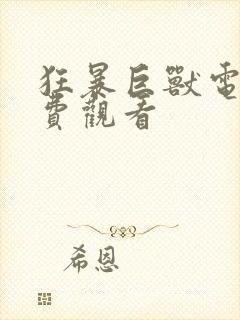 狂暴巨獸電
費觀看
希恩